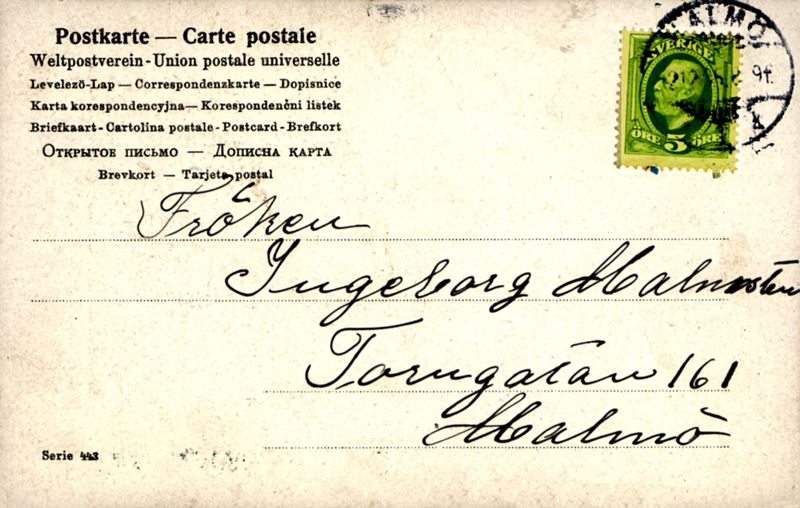 Postkarte — Carte postale
Weltpostverein - Union postale universelle
Levelező-Lap — Correspondenzkarte — Dopisnice
Karta korespondencyjna — Korespondenčni listek
Briefkaart - Cartolina postale - Postcard - Brefkort
Открытое письмо — Дописна карта
Brevkort — Tarjeta postal
MALMÖ
SVERIGE
ÖRE 5 ÖRE
Fröken
Ingeborg Malmsten
Torngatan 161
Malmö
Serie 443